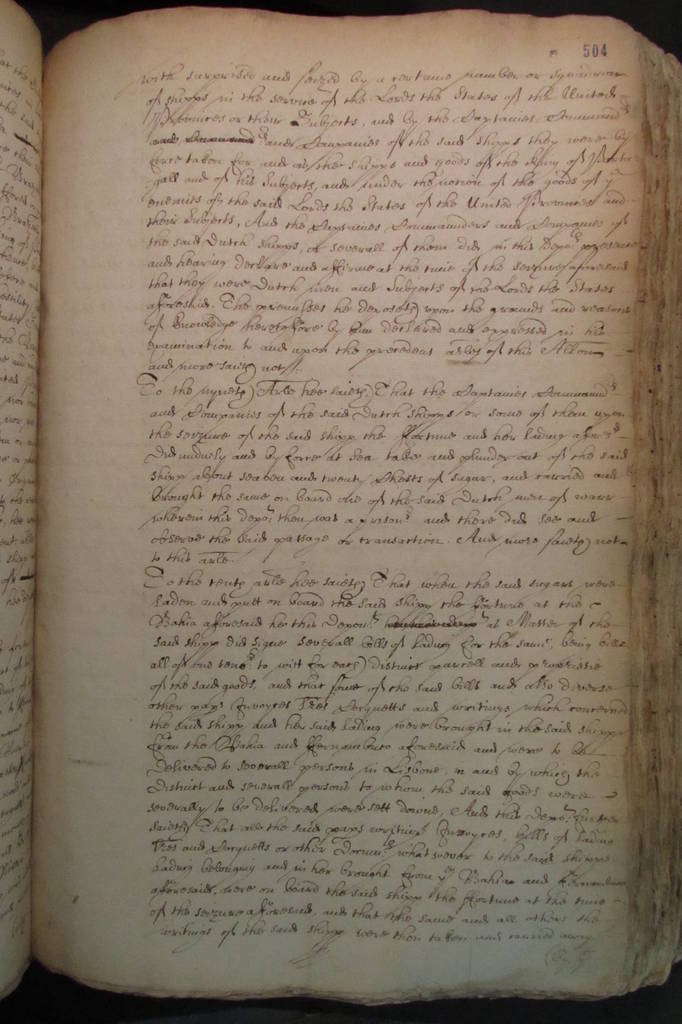 504
with surprized and seized by a certaine number or squadron
of shipps in the service of the Lords the States of the United
Provinces or their Subjects, and by the Captaines Command
and Companies of the said shipps they were by
force taken for and as the shipps and goods of the King of Portu
gall and of his Subjects, and under the notion of the goods of ye
enemies of the said Lords the States of the United Provinces and
their Subjects, And the Captaines Commaunders and Companies of
the said Dutch shipps, or severall of them did in this depts presence
and hearing declare and affirme at the time of the seizure aforesaid
that they were Dutch men and Subjects of the Lords the States
aforesaid. The premisses he deposeth upon the grounds and reasons
of knowledge heretofore by him declared and expressed in his
examination to and upon the precedent arles of this Allon
and more saieth not.
To the nyneth Arle hee saieth That the Captaines Command
and Companies of the said Dutch shipps or some of them upon
the seizure of the said shipp the Fortune and her lading afores
did unduely and by force at Sea take and plunder out of the said
shipp about seaven and twenty Chests of sugar, and carried and
brought the same on board one of the said Dutch men of warr
wherein this depot then was a prisonr and there did see and
observe the said passage or transaction. And more saieth not
to this arle.
To the tenth arle hee saieth That when the said sugars were
laden and putt on board the said shipp the Fortune at the
Bahia aforesaid hee this Depont as Master of the
said shipp did signe severall bills of lading for the same, being bills
all of one tenor to witt for each distinct parcell and
of the said goods, and that some of the said bills and also diverse
other paps Invoyces Tres Cocquetts and writings which concerned
the said shipp and her said lading were brought in the said shipp
from the Bahia and Fernambuco aforesaid and were to be
delivered to severall persons in Lisbone, in and by which the
distinct and severall persons to whom the said goods were
severally to be delivered were sett downe, And this Depot further
saieth That all the said paps writings Invoyces, bills of lading
Tres and Cocquetts or other Documts whatsoever to the said shipp
lading belonging and in her brought from ye Bahia and Fernambuco
aforesaid, were on board the said shipp the Fortune at the time
of the seizure aforesaid, and that the same and all others the
writings of the said shipp were then taken and carried away
By ye